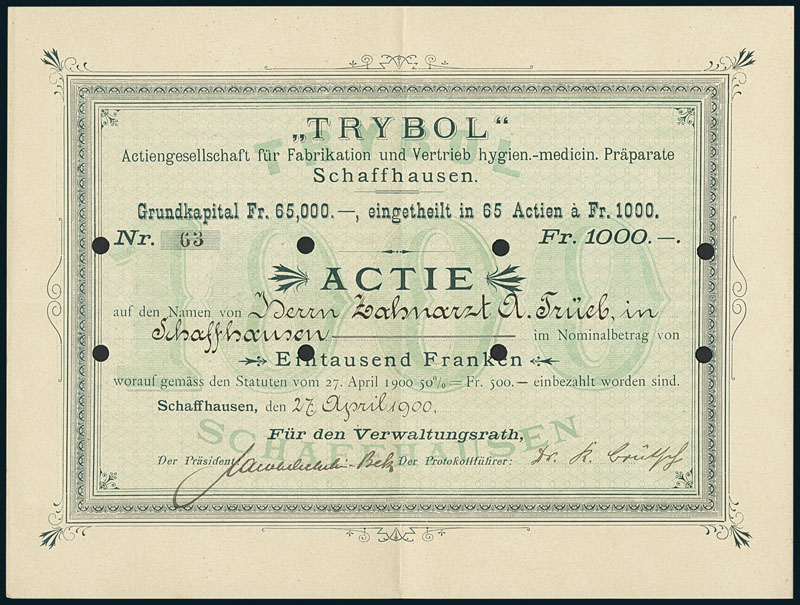 „TRYBOL“
Actiengesellschaft für Fabrikation und Vertrieb hygien.-medicin. Präparate
Schaffhausen.
Grundkapital Fr. 65,000.—, eingetheilt in 65 Actien à Fr. 1000.
Nr. 63 Fr. 1000.—.
ACTIE
auf den Namen von Herrn Zahnarzt A. Trüeb, in
Schaffhausen im Nominalbetrag von
Eintausend Franken
worauf gemäss den Statuten vom 27. April 1900 50% = Fr. 500.— einbezahlt worden sind.
Schaffhausen, den 27. April 1900.
Für den Verwaltungsrath,
Der Präsident: Der Protokollführer: Dr. K. Brütsch
TRYBOL
1000
SCHAFFHAUSEN